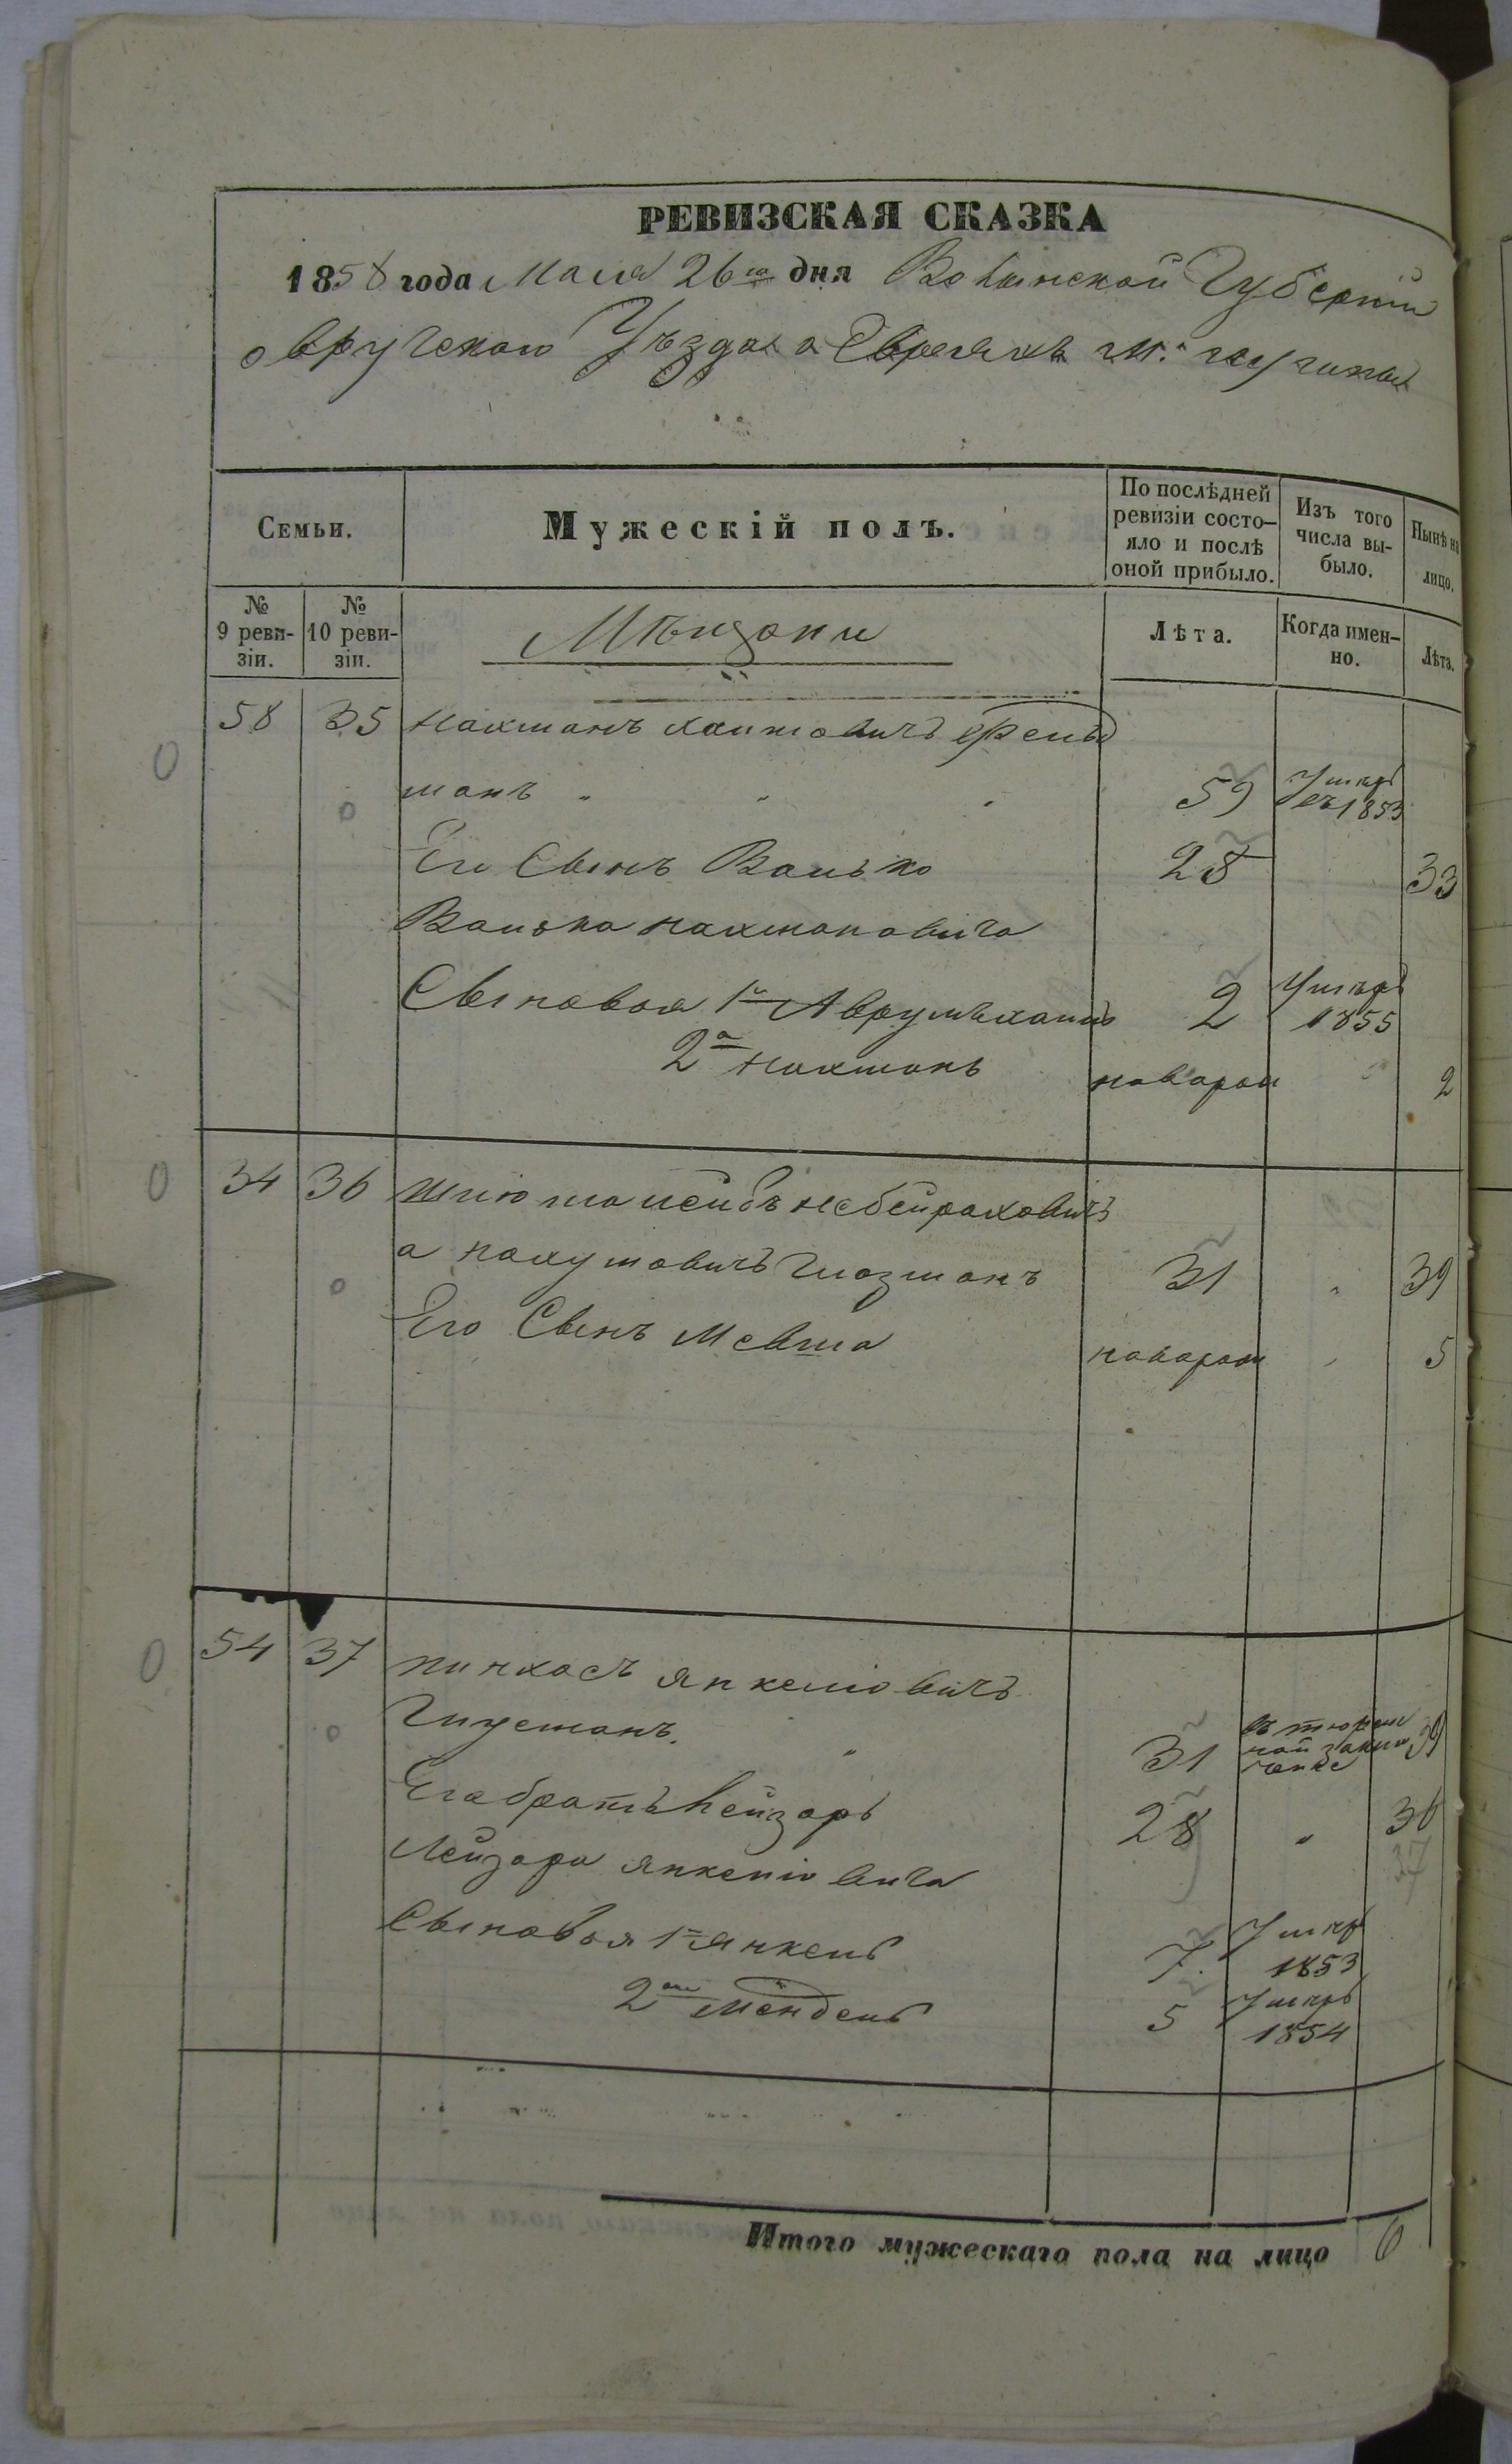 РЕВИЗСКАЯ СКАЗКА
1858 года Мая 26го дня Волынской Губерніи
овручскаго Уѣзда о Евреяхъ м.
Семьи.
Мужескій полъ.
По послѣдней ревизіи состо-яло и послѣ оной прибыло.
Изъ того числа вы-было.
Нынѣ на лицо.
№ 9 реви-зіи.
№ 10 реви-зіи.
Мѣщане
Лѣта.
Когда имен-но.
Лѣта.
58 35 Нахманъ Хаимовичъ Фель
манъ 59 Умеръ въ 1853
Его Сынъ Волько 28 33
Волька Нахмановича
Сыновья 1й Аврумъ хаимъ 2 Умеръ 1855
2й Нахманъ новорож 2
34 36 Шлиома лейбъ не бейраховичъ
а нахумовичъ Глозманъ 31 " 39
Его Сынъ Мевша новорож " 5
54 37 пинхасъ янкелiовичъ
31 въ тюрем ной заклю ченіе 39
Его братъ Лейзоръ 28 " 36
37
Лейзора янкелiовича
Сыновья 1й Янкель 7 Умеръ 1853
2й Мендель 5 Умеръ 1854
Итого мужескаго пола на лицо 6